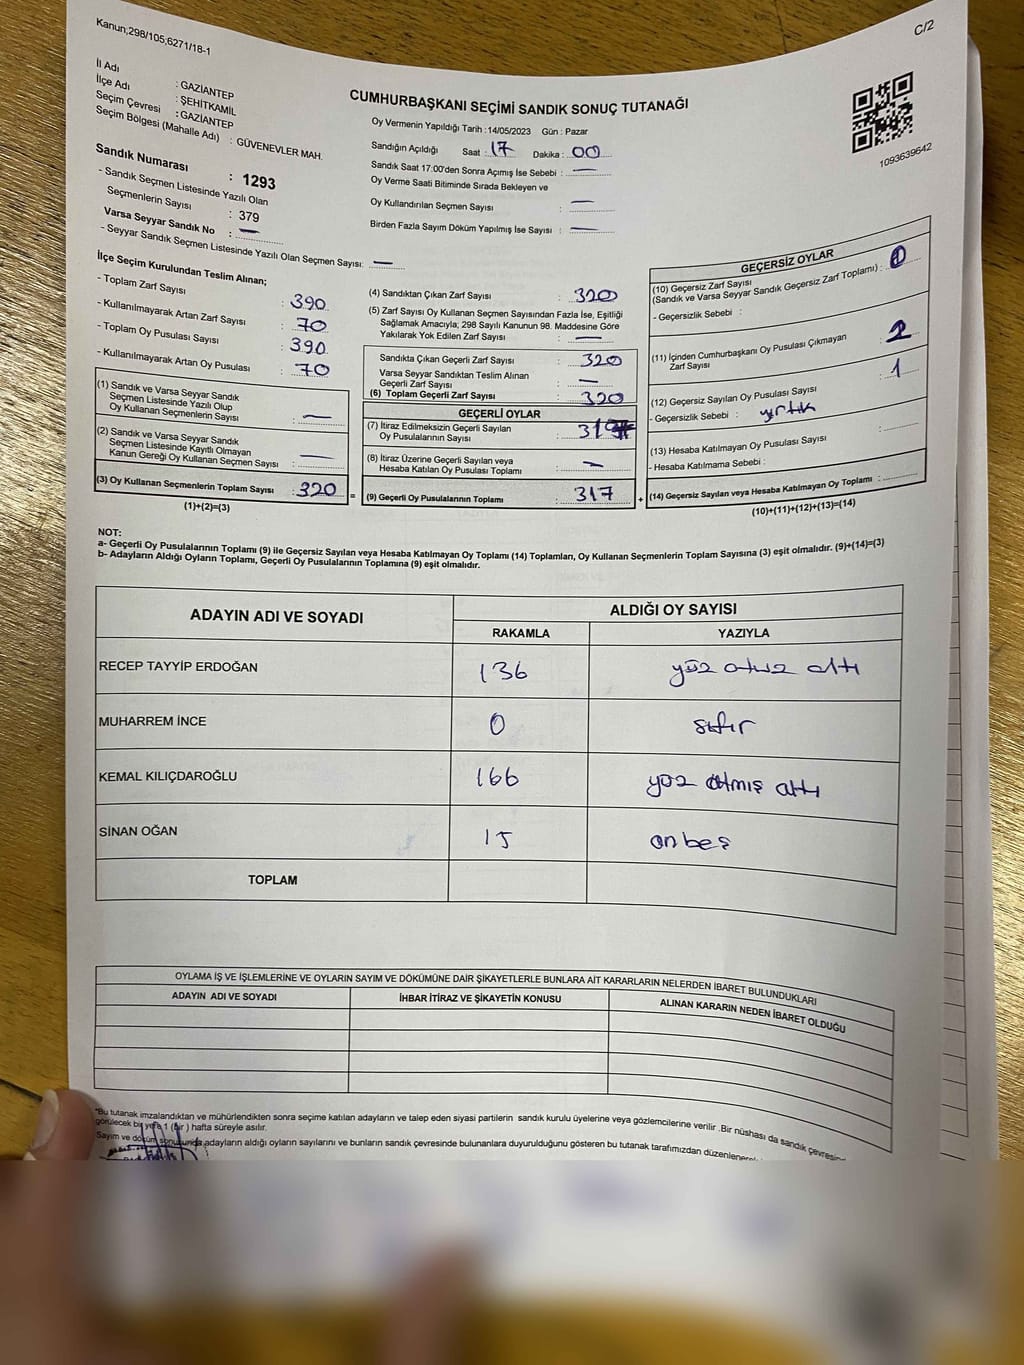 Kanun;298/105;6271/18-1
C/2
İl Adı : GAZİANTEP
İlçe Adı : ŞEHİTKAMİL
Seçim Çevresi : GAZİANTEP
Seçim Bölgesi (Mahalle Adı) : GÜVENEVLER MAH.
Sandık Numarası : 1293
- Sandık Seçmen Listesinde Yazılı Olan
Seçmenlerin Sayısı : 379
Varsa Seyyar Sandık No : —
- Seyyar Sandık Seçmen Listesinde Yazılı Olan Seçmen Sayısı: —
CUMHURBAŞKANI SEÇİMİ SANDIK SONUÇ TUTANAĞI
Oy Vermenin Yapıldığı Tarih :14/05/2023 Gün : Pazar
Sandığın Açıldığı Saat : 17 Dakika : 00
Sandık Saat 17:00'den Sonra Açımış İse Sebebi : —
Oy Verme Saati Bitiminde Sırada Bekleyen ve
Oy Kullandırılan Seçmen Sayısı : —
Birden Fazla Sayım Döküm Yapılmış İse Sayısı : —
1093639642
İlçe Seçim Kurulundan Teslim Alınan;
- Toplam Zarf Sayısı : 390
- Kullanılmayarak Artan Zarf Sayısı : 70
- Toplam Oy Pusulası Sayısı : 390
- Kullanılmayarak Artan Oy Pusulası : 70
(1) Sandık ve Varsa Seyyar Sandık
Seçmen Listesinde Yazılı Olup
Oy Kullanan Seçmenlerin Sayısı : —
(2) Sandık ve Varsa Seyyar Sandık
Seçmen Listesinde Kayıtlı Olmayan
Kanun Gereği Oy Kullanan Seçmen Sayısı : —
(3) Oy Kullanan Seçmenlerin Toplam Sayısı : 320 =
(1)+(2)=(3)
(4) Sandıktan Çıkan Zarf Sayısı : 320
(5) Zarf Sayısı Oy Kullanan Seçmen Sayısından Fazla İse, Eşitliği
Sağlamak Amacıyla; 298 Sayılı Kanunun 98. Maddesine Göre
Yakılarak Yok Edilen Zarf Sayısı : —
Sandıkta Çıkan Geçerli Zarf Sayısı : 320
Varsa Seyyar Sandıktan Teslim Alınan
Geçerli Zarf Sayısı : —
(6) Toplam Geçerli Zarf Sayısı : 320
GEÇERLİ OYLAR
(7) İtiraz Edilmeksizin Geçerli Sayılan
Oy Pusulalarının Sayısı :
(8) İtiraz Üzerine Geçerli Sayılan veya
Hesaba Katılan Oy Pusulası Toplamı : —
(9) Geçerli Oy Pusulalarının Toplamı : 317 +
GEÇERSİZ OYLAR
(10) Geçersiz Zarf Sayısı
(Sandık ve Varsa Seyyar Sandık Geçersiz Zarf Toplamı) :
- Geçersizlik Sebebi :
(11) İçinden Cumhurbaşkanı Oy Pusulası Çıkmayan
Zarf Sayısı : 2
(12) Geçersiz Sayılan Oy Pusulası Sayısı : 1
- Geçersizlik Sebebi : yırtık
(13) Hesaba Katılmayan Oy Pusulası Sayısı :
- Hesaba Katılmama Sebebi :
(14) Geçersiz Sayılan veya Hesaba Katılmayan Oy Toplamı :
(10)+(11)+(12)+(13)=(14)
NOT:
a- Geçerli Oy Pusulalarının Toplamı (9) ile Geçersiz Sayılan veya Hesaba Katılmayan Oy Toplamı (14) Toplamları, Oy Kullanan Seçmenlerin Toplam Sayısına (3) eşit olmalıdır. (9)+(14)=(3)
b- Adayların Aldığı Oyların Toplamı, Geçerli Oy Pusulalarının Toplamına (9) eşit olmalıdır.
ADAYIN ADI VE SOYADI
ALDIĞI OY SAYISI
RAKAMLA YAZIYLA
RECEP TAYYİP ERDOĞAN 136 yüz otuz altı
MUHARREM İNCE 0 sıfır
KEMAL KILIÇDAROĞLU 166 yüz altmış altı
SİNAN OĞAN 15 onbeş
TOPLAM
OYLAMA İŞ VE İŞLEMLERİNE VE OYLARIN SAYIM VE DÖKÜMÜNE DAİR ŞİKAYETLERLE BUNLARA AİT KARARLARIN NELERDEN İBARET BULUNDUKLARI
ADAYIN ADI VE SOYADI İHBAR İTİRAZ VE ŞİKAYETİN KONUSU ALINAN KARARIN NEDEN İBARET OLDUĞU
*Bu tutanak imzalandıktan ve mühürlendikten sonra seçime katılan adayların ve talep eden siyasi partilerin sandık kurulu üyelerine veya gözlemcilerine verilir .Bir nüshası da sandık çevresinde
görülecek bir yere 1 (bir ) hafta süreyle asılır.
Sayım ve döküm sonucunda adayların aldığı oyların sayılarını ve bunların sandık çevresinde bulunanlara duyurulduğunu gösteren bu tutanak tarafımızdan